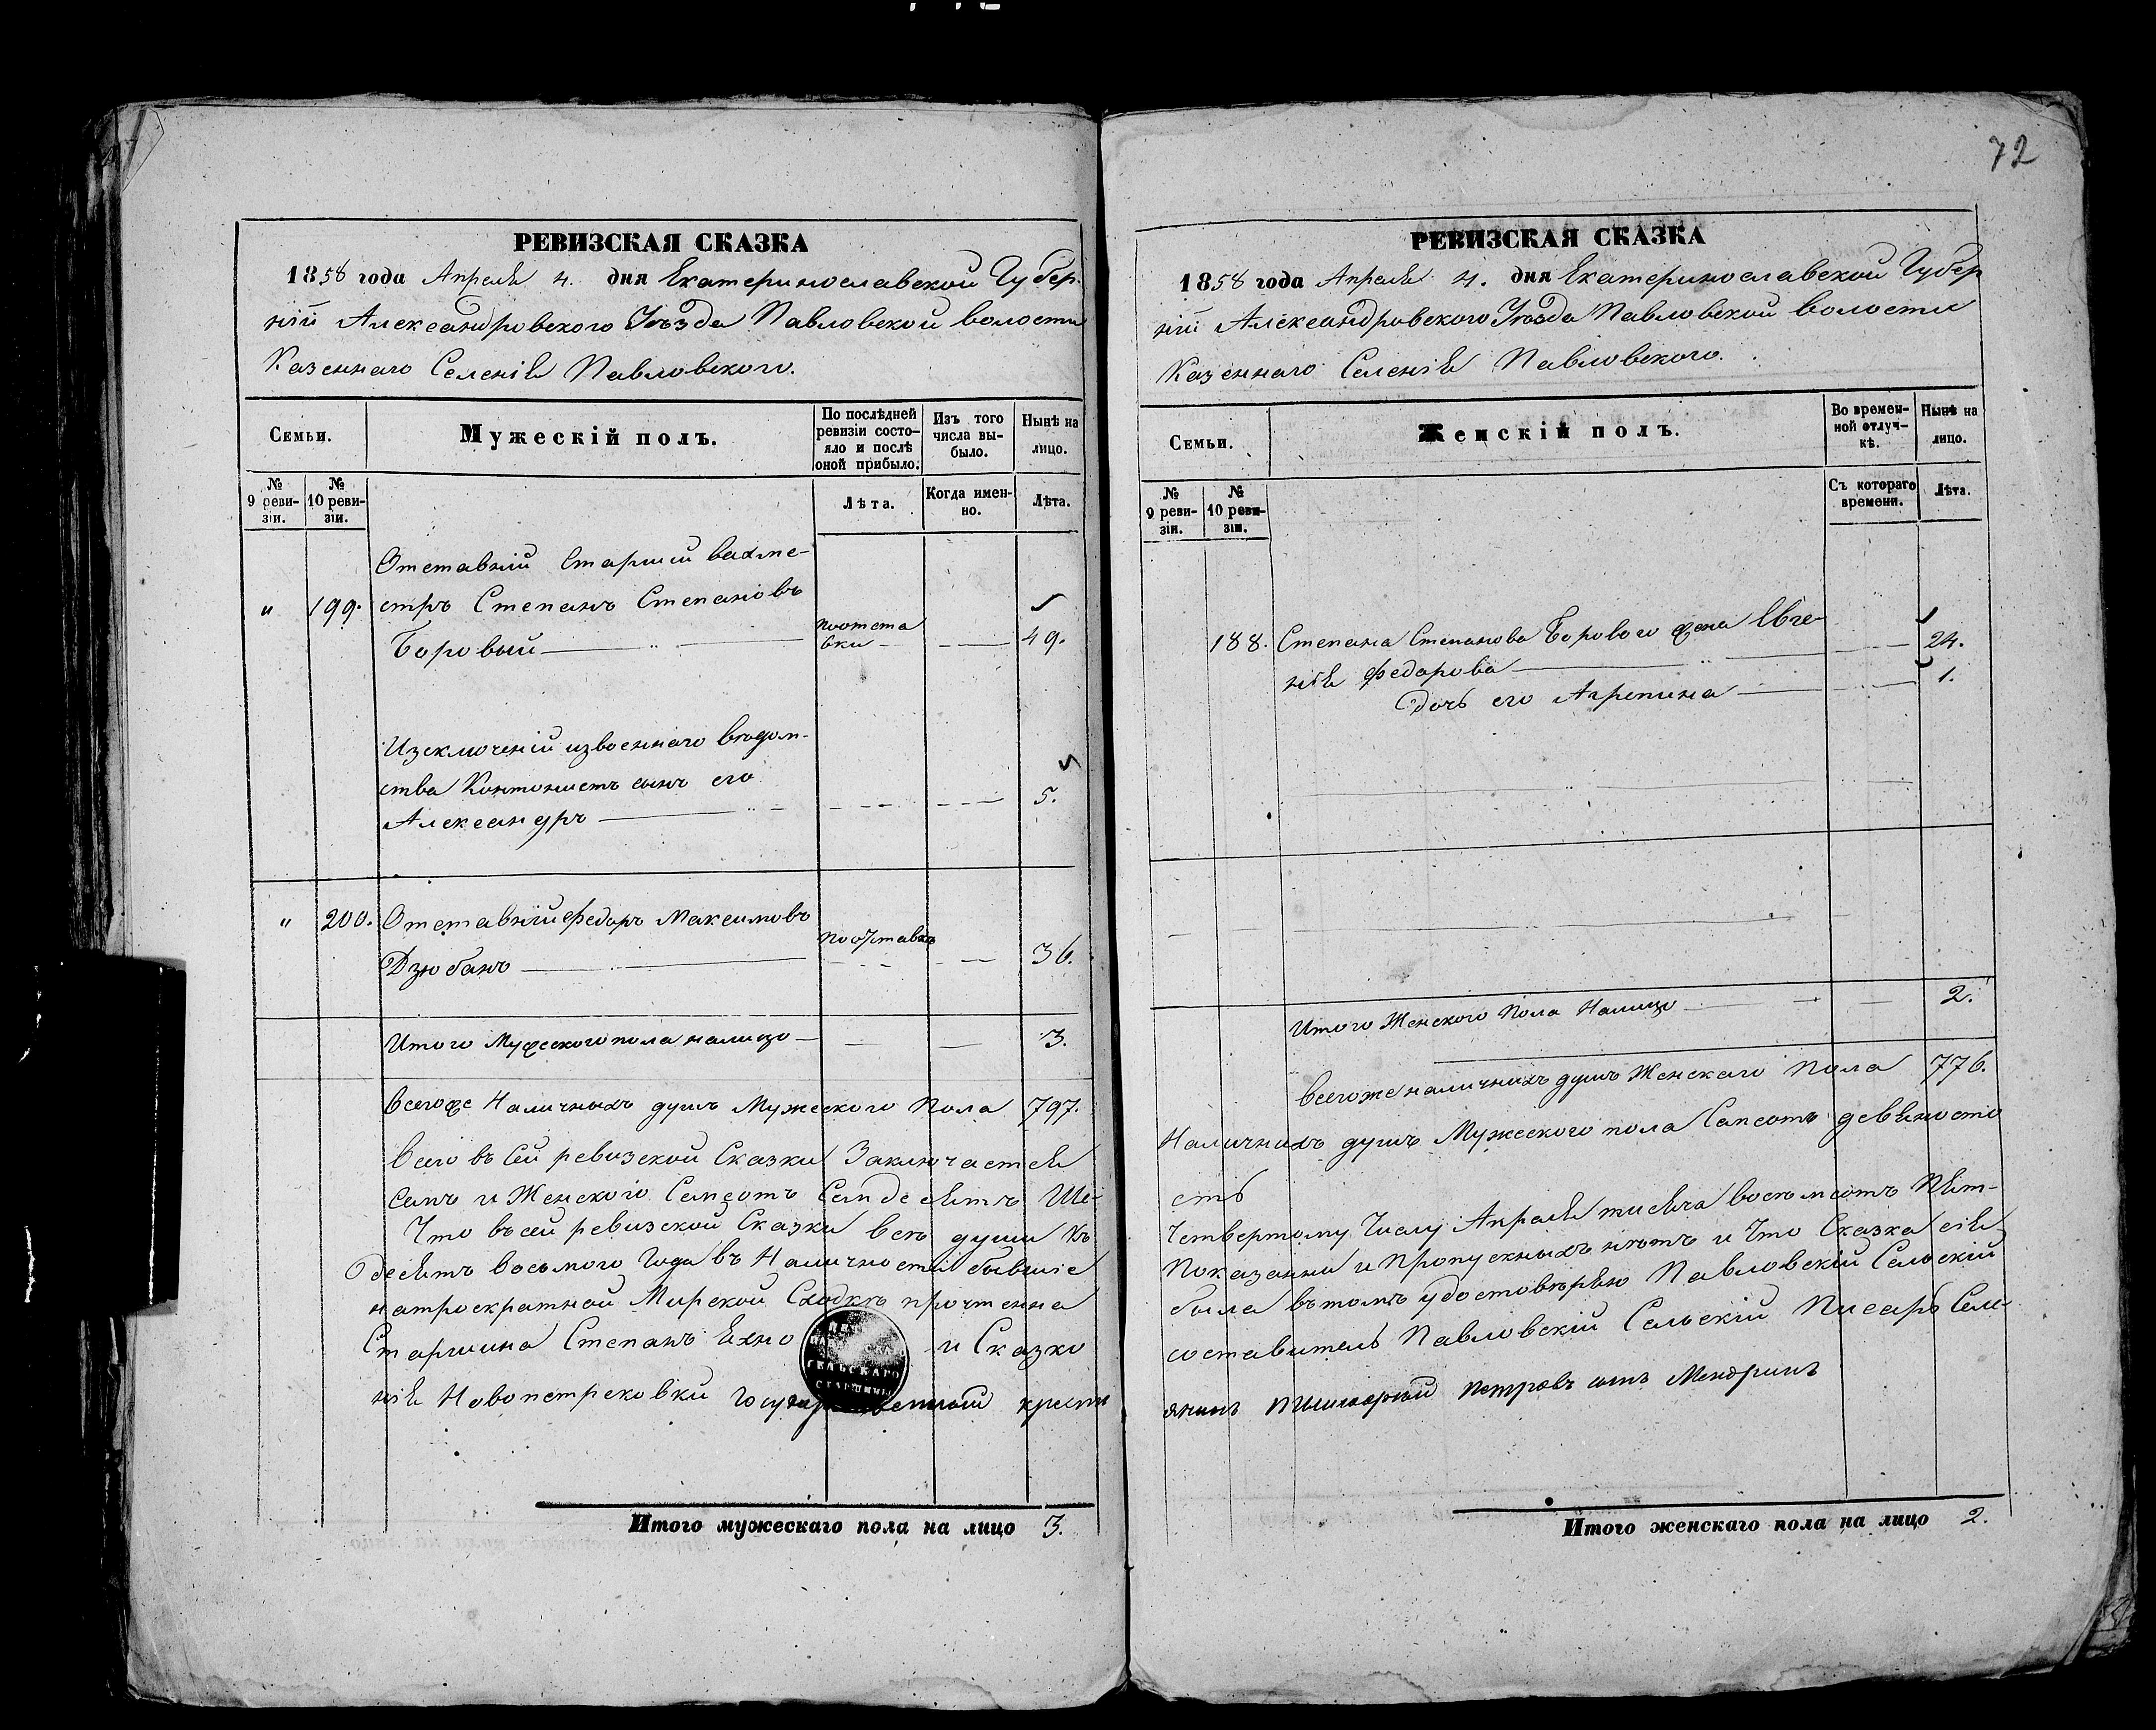 72
РЕВИЗСКАЯ СКАЗКА
1858 года Апреля 4. дня Екатеринославской Губер-
ніи Александровского Уѣзда Павловской волости
Казеннаго Селенія Павловского.
Семьи.
Мужескій полъ.
По послѣдней ревизіи состояло и послѣ оной прибыло.
Изъ того числа выбыло.
Нынѣ на лицо.
№ 9 ревизіи.
№ 10 ревизіи.
Лѣта.
Когда именно.
Лѣта.
Отставній Старшій вахме-
" 199. стръ Степанъ Степановъ
Боровый поотставки 49.
Изсключеній извоеннаго вѣдом-
ства Контонистъ сынъ его
Александръ 5.
" 200. Отставній Федоръ Максимовъ
Дзюбанъ поотставкѣ 36.
Итого Мужеского пола налицо 3.
всегоже Наличныхъ душъ Мужеского Пола 797.
Всего въ сей ревизской Сказки Заключается
семъ и Женского Семсотъ Семдесятъ Ше-
Что въ сей ревизской Сказки всѣ души къ
десятъ восьмого Года въ Наличности бывшіе
натроекратной Мирской Сходкѣ прочтенна
Старшина Степанъ Яхно и Сказко
СЕЛЬСКАГО
СТАРШИНЫ
нія Новопетриковки Государственный крестя
Итого мужескаго пола на лицо 3.
РЕВИЗСКАЯ СКАЗКА
1858 года Апреля 4. дня Екатеринославской Губер
ніи Александровского Уѣзда Павловской волости
Казеннаго Селенія Павловского.
Семьи.
Женскій полъ.
Во временной отлучкѣ.
Нынѣ на лицо.
№ 9 ревизіи.
№ 10 ревизіи.
Съ котораго времени.
Лѣта.
188. Степана Степанова Борового жена Евге- 24.
нія Федорова
Дочь его Агрепина 1.
Итого Женского Пола Налицо 2.
всегоже наличныхъ душъ Женскаго Пола 776.
Наличныхъ душъ Мужеского пола Семсотъ девяносто
стъ
Четвертому Числу Апреля тисяча восемсотъ Пят-
показанни и Пропускныхъ нѣтъ и Что Сказка сія
была въ томъ удостовѣряю Павловскій Сельскій
составитель Павловскій Сельскій Писарь Селе-
янинъ Петровъ сынъ Мендринъ
Итого женскаго пола на лицо 2.